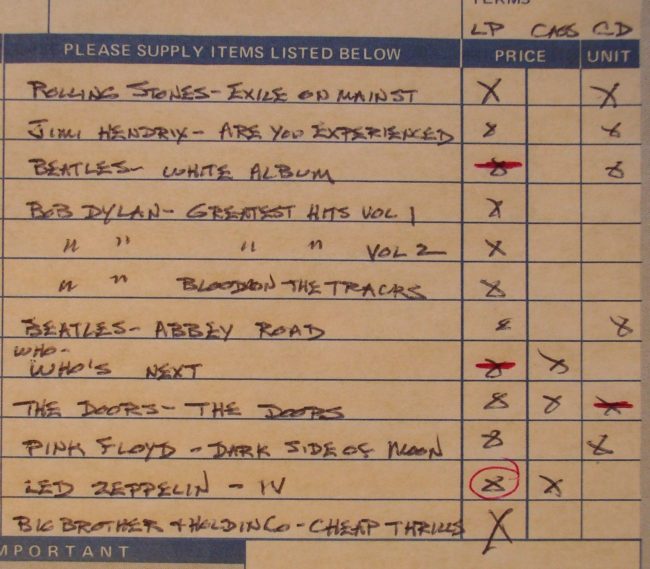 TERMS
LP CASS CD
PLEASE SUPPLY ITEMS LISTED BELOW PRICE UNIT
ROLLING STONES - EXILE ON MAIN ST X X
JIMI HENDRIX - ARE YOU EXPERIENCED X X
BEATLES - WHITE ALBUM X X
BOB DYLAN - GREATEST HITS VOL 1 X
" " " " VOL 2 X
" " BLOOD ON THE TRACKS X
BEATLES - ABBEY ROAD X X
WHO -
WHO'S NEXT X X
THE DOORS - THE DOORS X X X
PINK FLOYD - DARK SIDE OF MOON X X
LED ZEPPELIN - IV X X
BIG BROTHER + HOLDIN CO - CHEAP THRILLS X
IMPORTANT